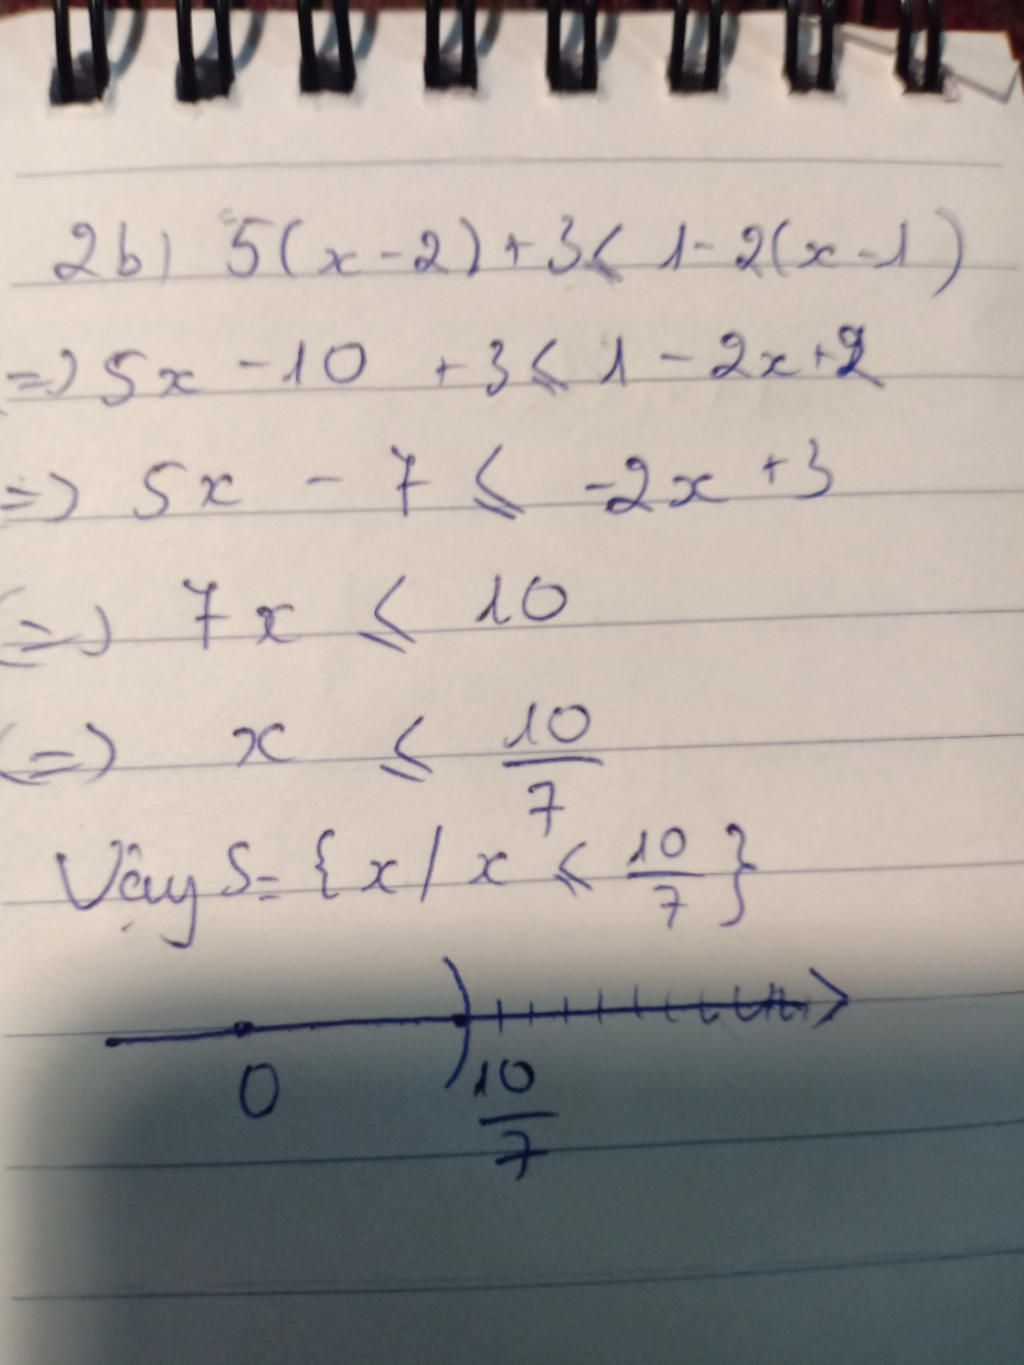 2b) 5(x-2)+3≤ 1-2(x-1)
=) 5x -10 +3≤ 1 - 2x+2
=) 5x - 7 ≤ -2x +3
(=) 7x ≤ 10
(=) x ≤ 10/7
Vậy S= {x/ x ≤ 10/7}
0 10/7